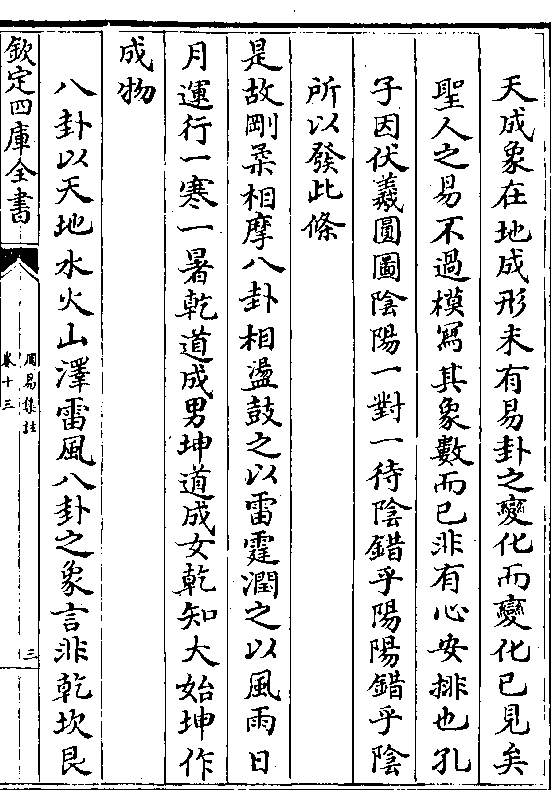 天成象在地成形未有易卦之變化而變化已見矣
聖人之易不過模寫其象數而已非有心安排也孔
子因伏羲圓圖陰陽一對一待陰錯乎陽陽錯乎陰
所以發此條
是故剛柔相摩八卦相盪鼓之以雷霆潤之以風雨日
月運行一寒一暑乾道成男坤道成女乾知大始坤作
成物
八卦以天地水火山澤雷風八卦之象言非乾坎艮
欽定四庫全書
周易集註
卷十三
三